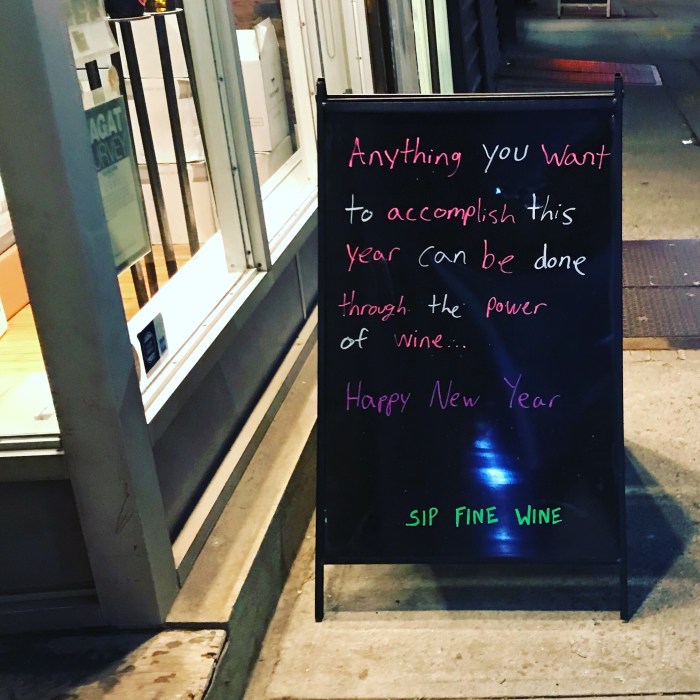 AGAT
Anything you want
to accomplish this
year can be done
through the power
of wine...
Happy New Year
SIP FINE WINE